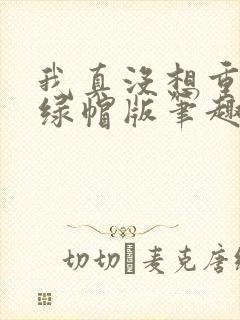 我真没想重
绿帽版笔趣
切切 麦克唐纳